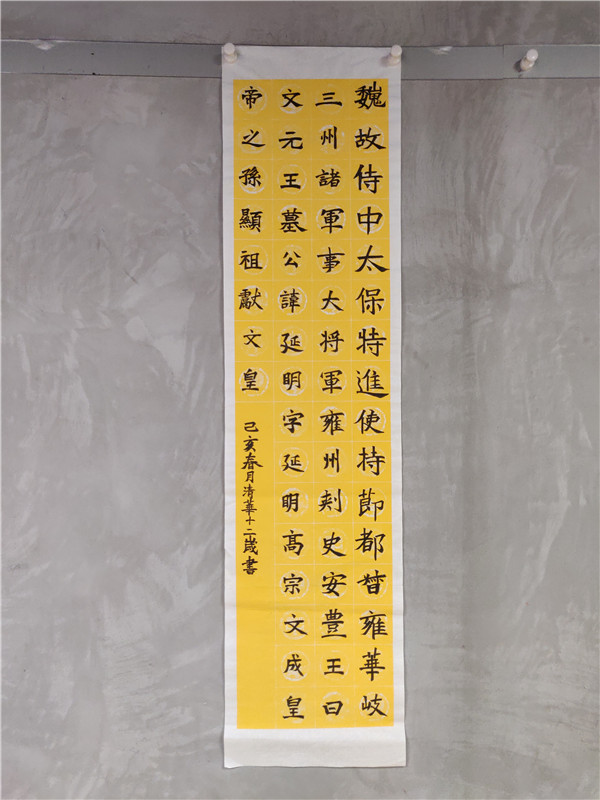 魏故侍中太保特進使持節都督雍華岐
三州諸軍事大将軍雍州刾史安豊王曰
文元王墓公諱延明字延明髙宗文成皇
帝之孫顯祖獻文皇
己亥春月清華十二歲書